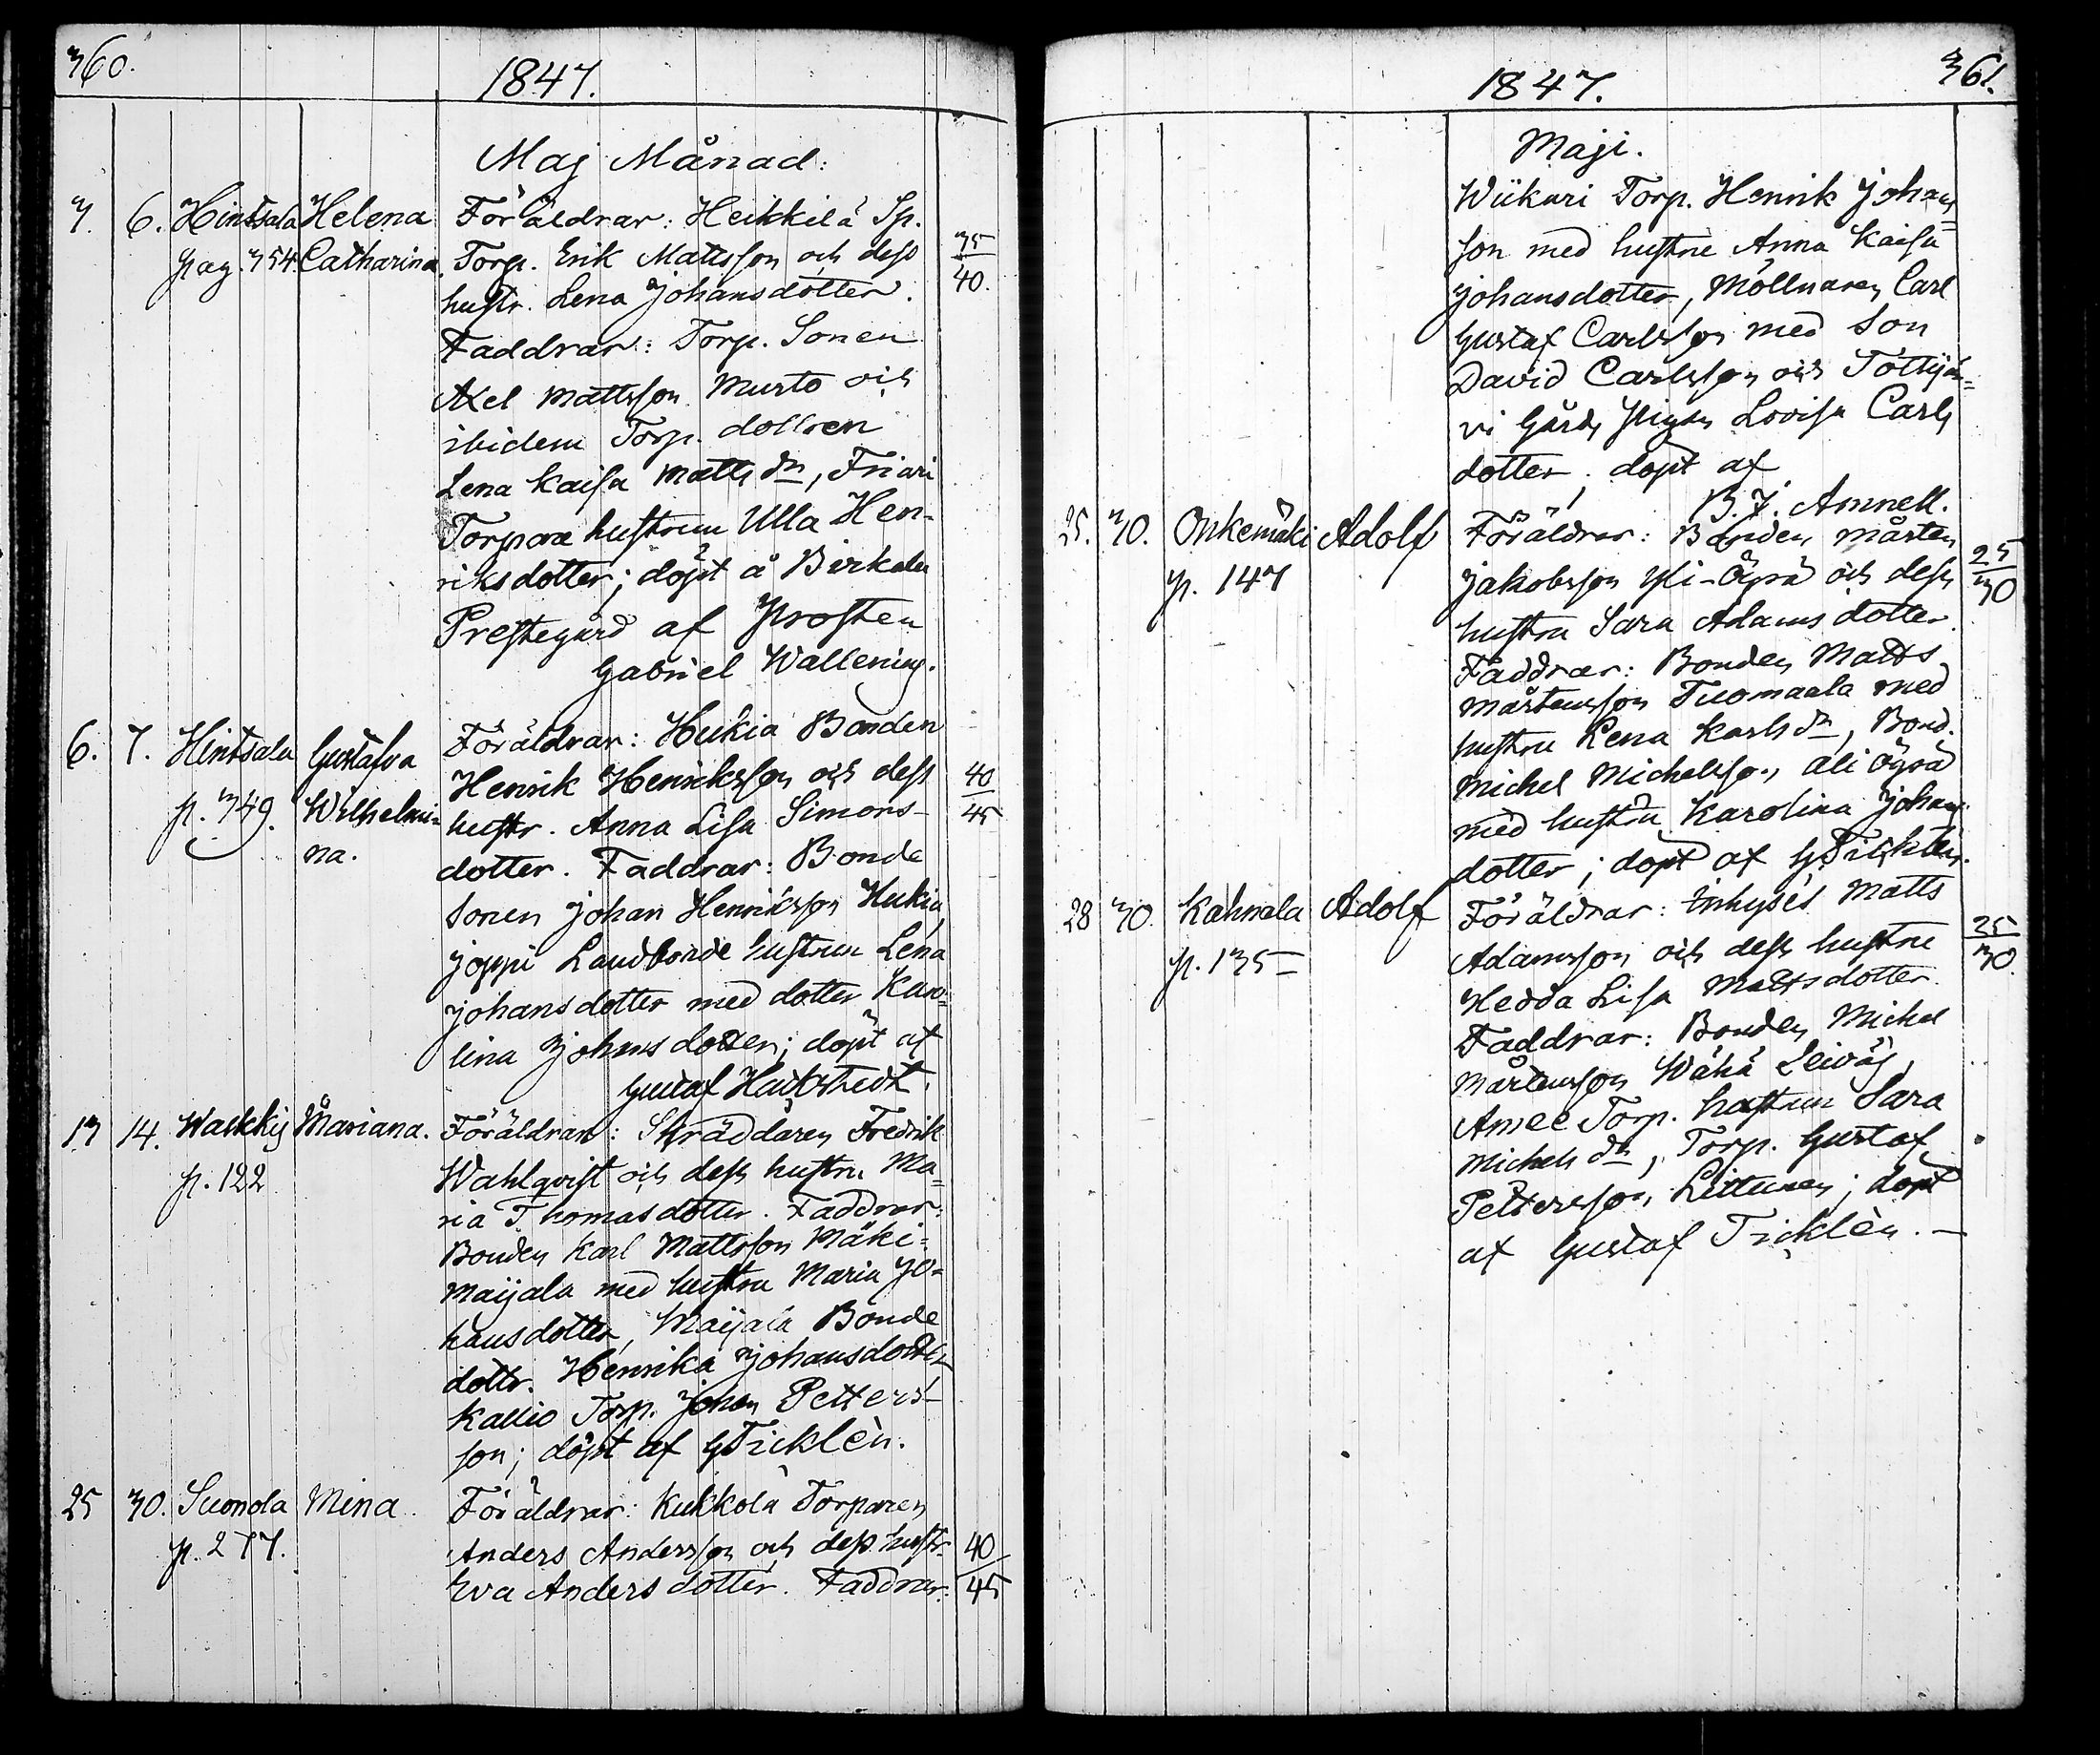 360.
1847.
Maj Månad:
3. 6. Hintsala Helena Föräldrar: Heikkilä Sp.
pag. 354. Catharina. Torp. Erik Mattsson och dess 35
hustr. Lena Johansdotter. 40.
Faddrar: Torp. Sonen
Axel Mattsson Murto och
ibidem Torp. dottren
Lena Kaisa Matts dr, Friari
Torpare hustrun Ulla Hen-
riksdotter; döpt å Birkala
Prestegård af Prosten
Gabriel Wallening.
6. 7. Hintsala Gustafva Föräldrar: Hukia Bonden
Henrik Henriksson och dess 40
p. 349. Wilhelmi= hustr. Anna Lisa Simons- 45
na. dotter. Faddrar: Bonde
Sonen Johan Henriksson Hukia,
Joppi Landbonde hustrun Lena
Johansdotter med dotter Karo=
lina Johansdotter; döpt af
Gustaf
13 14. Waskkij Mariana. Föräldrar: Skräddaren Fredrik
p. 122 Wahlqvist och dess hustru Ma=
ria Thomasdotter. Faddrar:
Bonden Karl Mattsson Mäki=
maijala med hustru Maria Jo=
hansdotter, Maijala Bonde
dottr. Henrika Johansdotter
Kallio Torp. Johan Petters-
son; döpt af G Ticklèn.
25 30. Suonola Mina. Föräldrar: Kukkola Torparen
p. 277. Anders Andersson och dess hustr. 40
Eva Anders dotter. Faddrar: 45
361.
1847.
Maji.
Wiikari Torp. Henrik Johans=
son med hustru Anna Kaisa
Johansdotter, Möllnaren Carl
Gustaf Carlsson med Son
David Carlsson och Tottijär=
vi Gårds Pigan Lovisa Carls
dotter; döpt af
B. J. Amnell.
25. 30. Onkemäki Adolf Föräldrar: Bonden Mårten 25
p. 147 Jakobsson Yli-Äyrä och dess 30
hustru Sara Adams dotter.
Faddrar: Bonden Matts
Mårtensson Tuomaala med
hustru Lena Karls dr, Bond.
Michel Michelsson, Ali Äyrä
med hustru Karolina Johans
dotter; döpt af G Ticklèn.
28 30. Kahnala Adolf Föräldrar: Inhyses Matts
p. 135 Adamsson och dess hustru 25
Hedda Lisa Mattsdotter. 30.
Faddrar: Bonden Michel
Mårtensson Wähä Leiväs,
Amee Torp. hustrun Sara
Michels dr, Torp. Gustaf
Pettersson, Littunen; döpt
af Gustaf Ticklèn. —